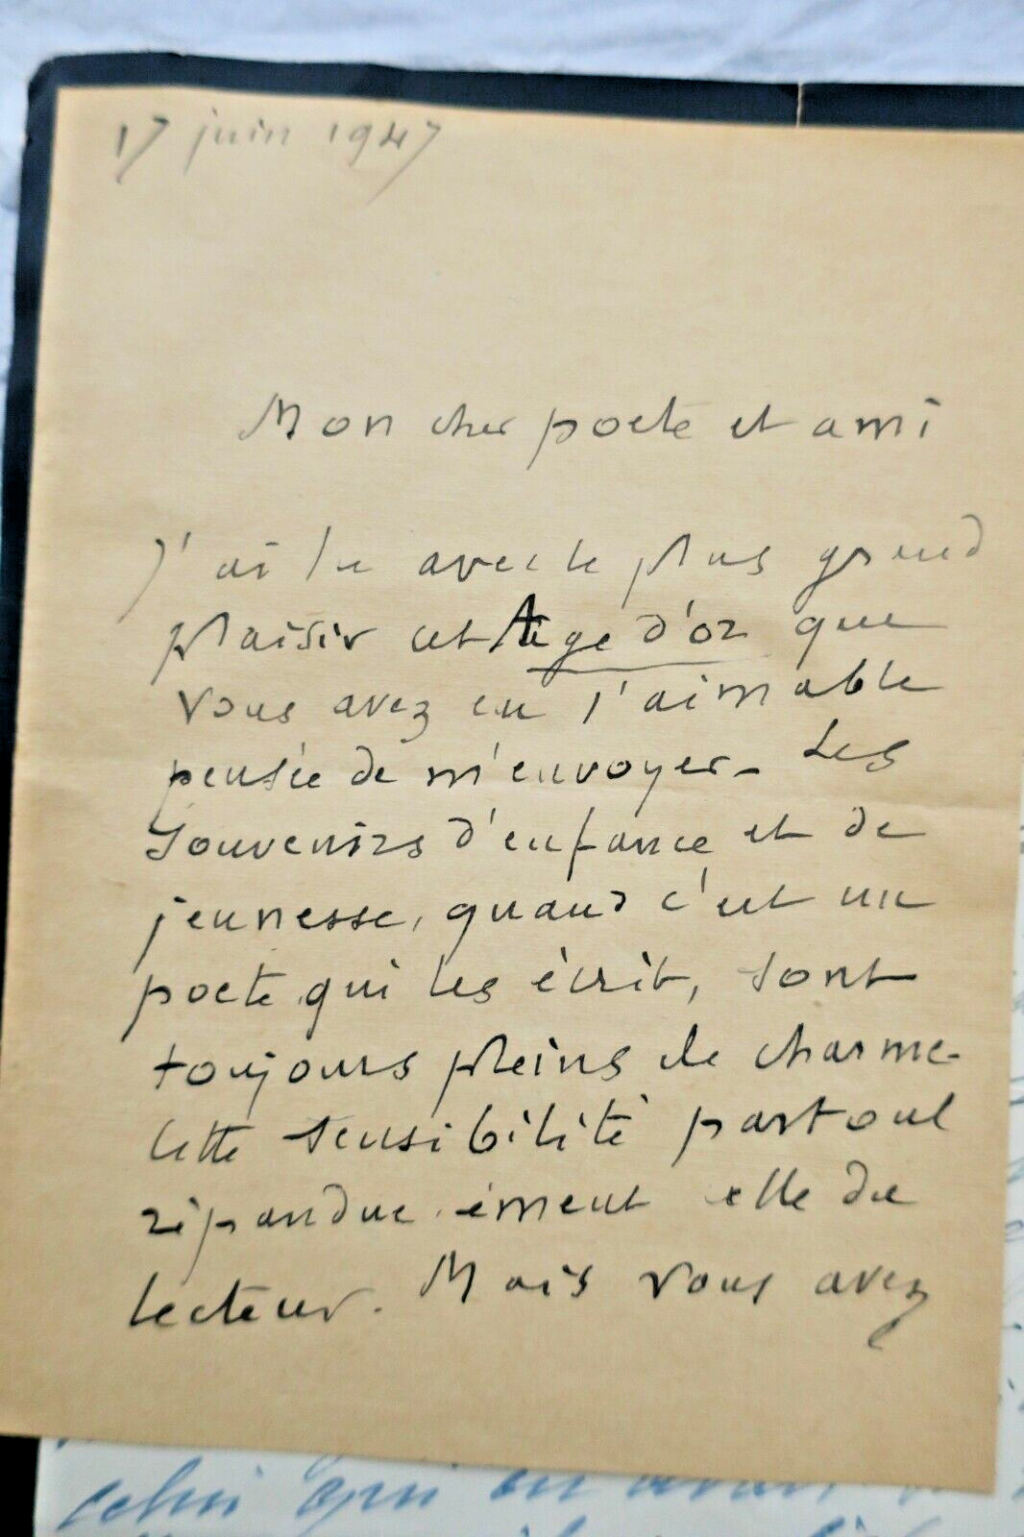 17 juin 1947
Mon cher poete et ami
J'ai lu avec le plus grand
plaisir cet Age d'or que
vous avez eu l'aimable
pensée de m'envoyer – Les
Souvenirs d'enfance et de
jeunesse, quand c'est un
poete qui les écrit, sont
toujours pleins de charme –
Cette sensibilité partout
répandue émeut elle du
lecteur. Mais vous avez
celui qui en avait